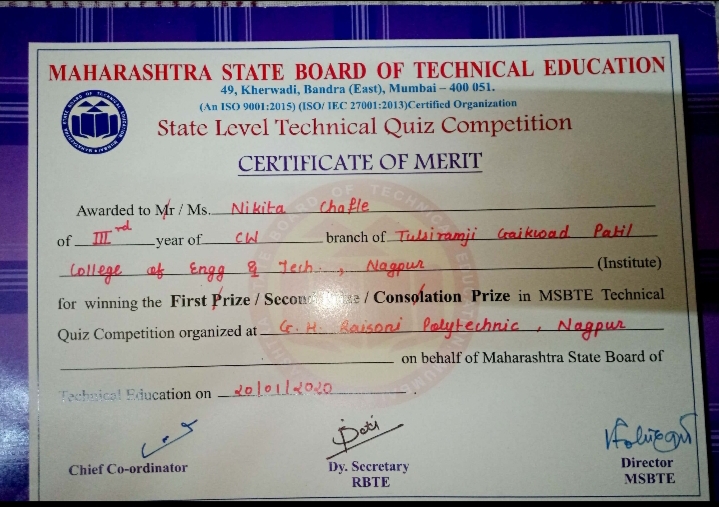 MAHARASHTRA STATE BOARD OF TECHNICAL EDUCATION
49, Kherwadi, Bandra (East), Mumbai – 400 051.
(An ISO 9001:2015) (ISO/ IEC 27001:2013)Certified Organization
State Level Technical Quiz Competition
CERTIFICATE OF MERIT
Awarded to Mr / Ms. Nikita Chafle
of IIIrd year of CW branch of Tulsiramji Gaikwad Patil
College of Engg & Tech., Nagpur (Institute)
for winning the First Prize / Second Prize / Consolation Prize in MSBTE Technical
Quiz Competition organized at G. H. Raisoni Polytechnic, Nagpur
on behalf of Maharashtra State Board of
Technical Education on 20/01/2020.
Chief Co-ordinator
Dy. Secretary
RBTE
Director
MSBTE